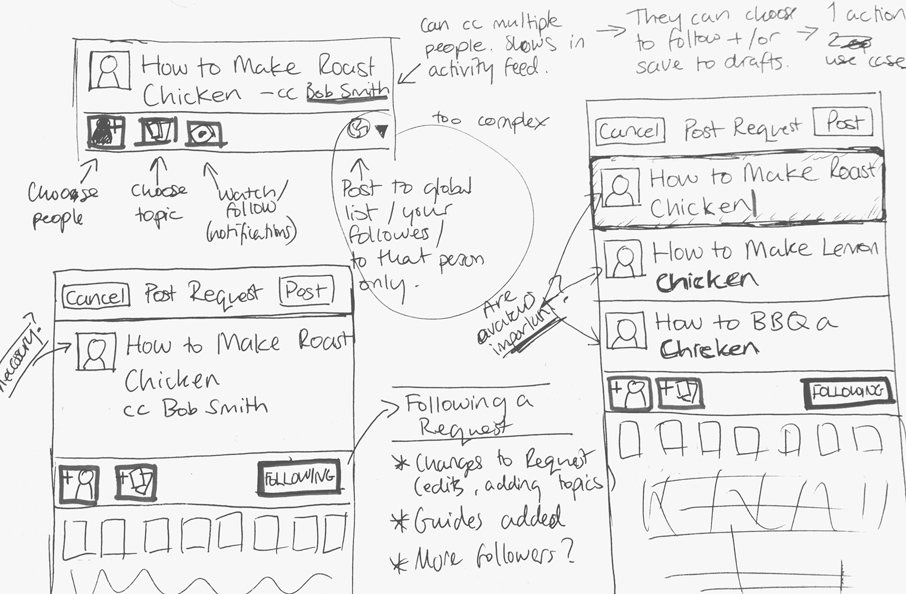 Can cc multiple
people. Shows in
activity feed.
They can choose
to follow +/or
save to drafts.
1 action
2
use case
How to Make Roast
Chicken - cc Bob Smith
Choose
people
choose
topic
Watch/
follow
(notifications)
Post to global
list / your
followes/
to that person
only.
too complex
Cancel Post Request Post
How to Make Roast
Chicken
cc Bob Smith
FOLLOWING
necessary?
Following a
Request
* Changes to Request
(edits, adding topics)
* Guides added
* More followers?
Cancel Post Request Post
How to Make Roast
Chicken
How to Make Lemon
Chicken
How to BBQ a
Chicken
FOLLOWING
Are
avatars
important?